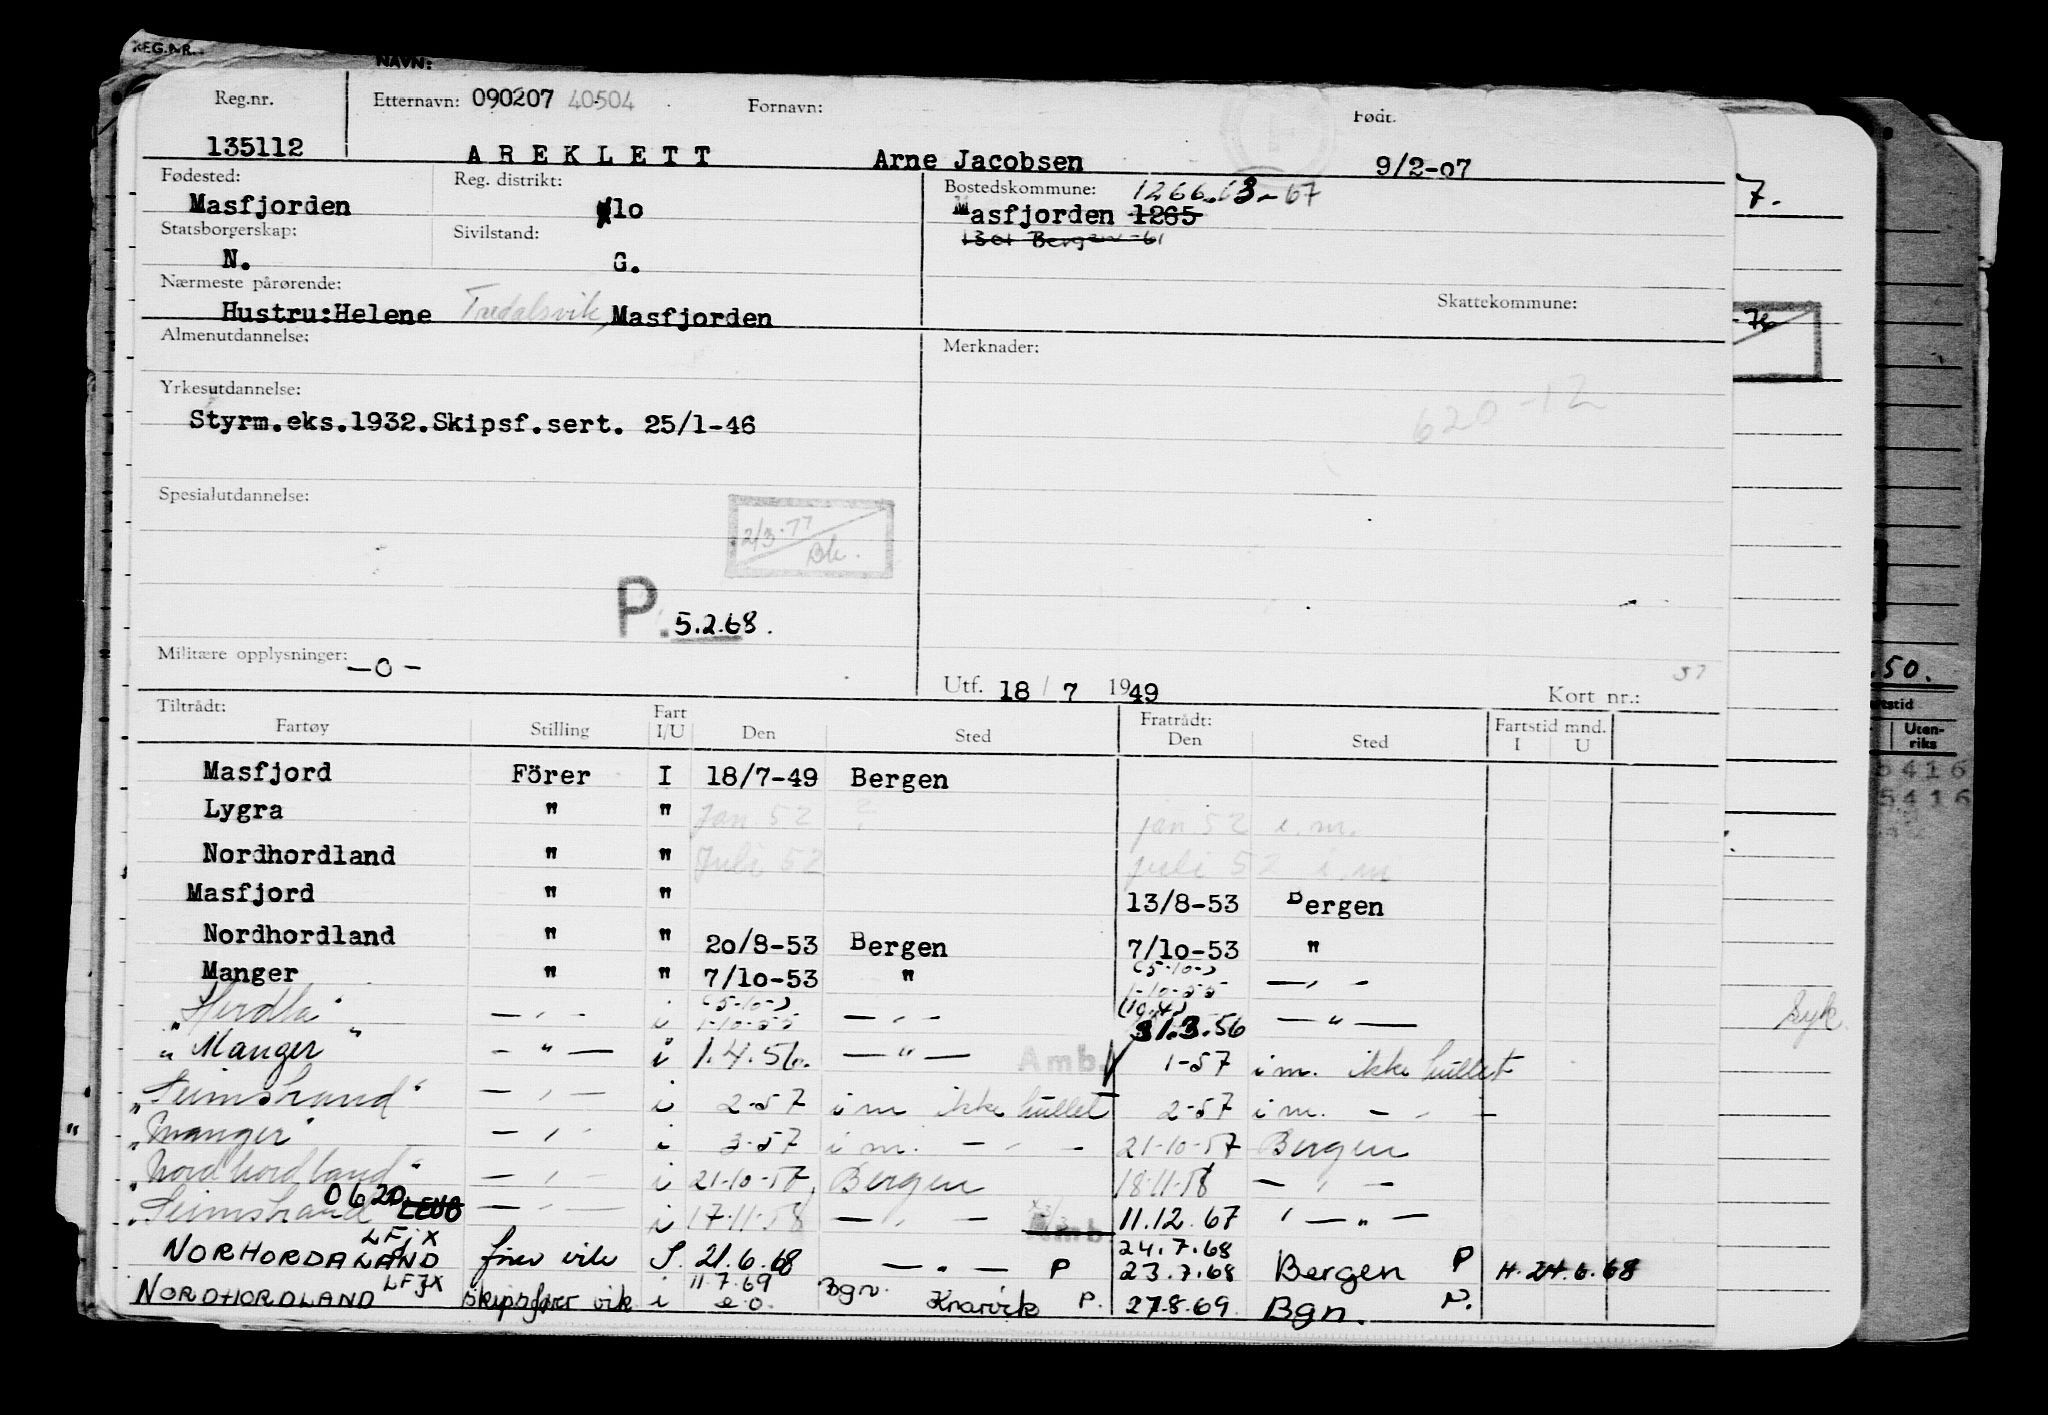 REG.NR.
NAVN:
Reg.nr. Etternavn: 090207 40504 Fornavn: Født.
135112 AREKLETT Arne Jacobsen 9/2-07
Fødested: Reg. distrikt: Bostedskommune: 1266.63-67
Masfjorden lo Masfjorden 1265
Statsborgerskap: Sivilstand: 1301 Bergen -61
N. G.
Nærmeste pårørende: Skattekommune:
Hustru:Helene Masfjorden
Almenutdannelse: Merknader:
Yrkesutdannelse: 620-12
Styrm.eks.1932.Skipsf.sert. 25/1-46
Spesialutdannelse:
2/3-77
Bk.
P. 5.2.68.
Militære opplysninger: -0-
Utf. 18/7 1949 Kort nr.:
Tiltrådt: Fart Fratrådt: Fartstid mnd.
Fartøy Stilling I/U Den Sted Den Sted I U
Masfjord Förer I 18/7-49 Bergen
Lygra " " Jan. 52 ? jan. 52 i.m.
Nordhordland " " Juli 52 juli 52 i.m
Masfjord " " 13/8-53 Bergen
Nordhordland " " 20/8-53 Bergen 7/10-53 "
Manger " " 7/10-53 " (5-10-) 1-10-55 - " -
"Herdla" - " - i (5-10-) 1-10-55 - " - (10.4) 31.3.56 - " -
"Manger" - " - i 1.4.56. - " - Amb. 1-57 i m. ikke hullet
"Seimstrand" - " - i 2-57 i m ikke hullet 2-57 i m. - " -
"Manger" - " - i 3-57 i m. - " - 21-10-57 Bergen
"Nordhordland" - " - i 21-10-57. Bergen 18-11-58 - " -
"Seimstrand" 0620 LEUB - " - i 17-11-58 - " - Amb. 11.12.67 - " -
NORHORDALAND LFJX fører vik S. 21.6.68 - " - P 24.7.68 23.7.68 Bergen P H. 24.6.68
NORDHORDLAND LFJX skipsfører vik i 11.7.69 e.o. Bgn. Knarvik P. 27.8.69 Bgn. P.
7.
50.
Utenriks
5416
5416
Syk.